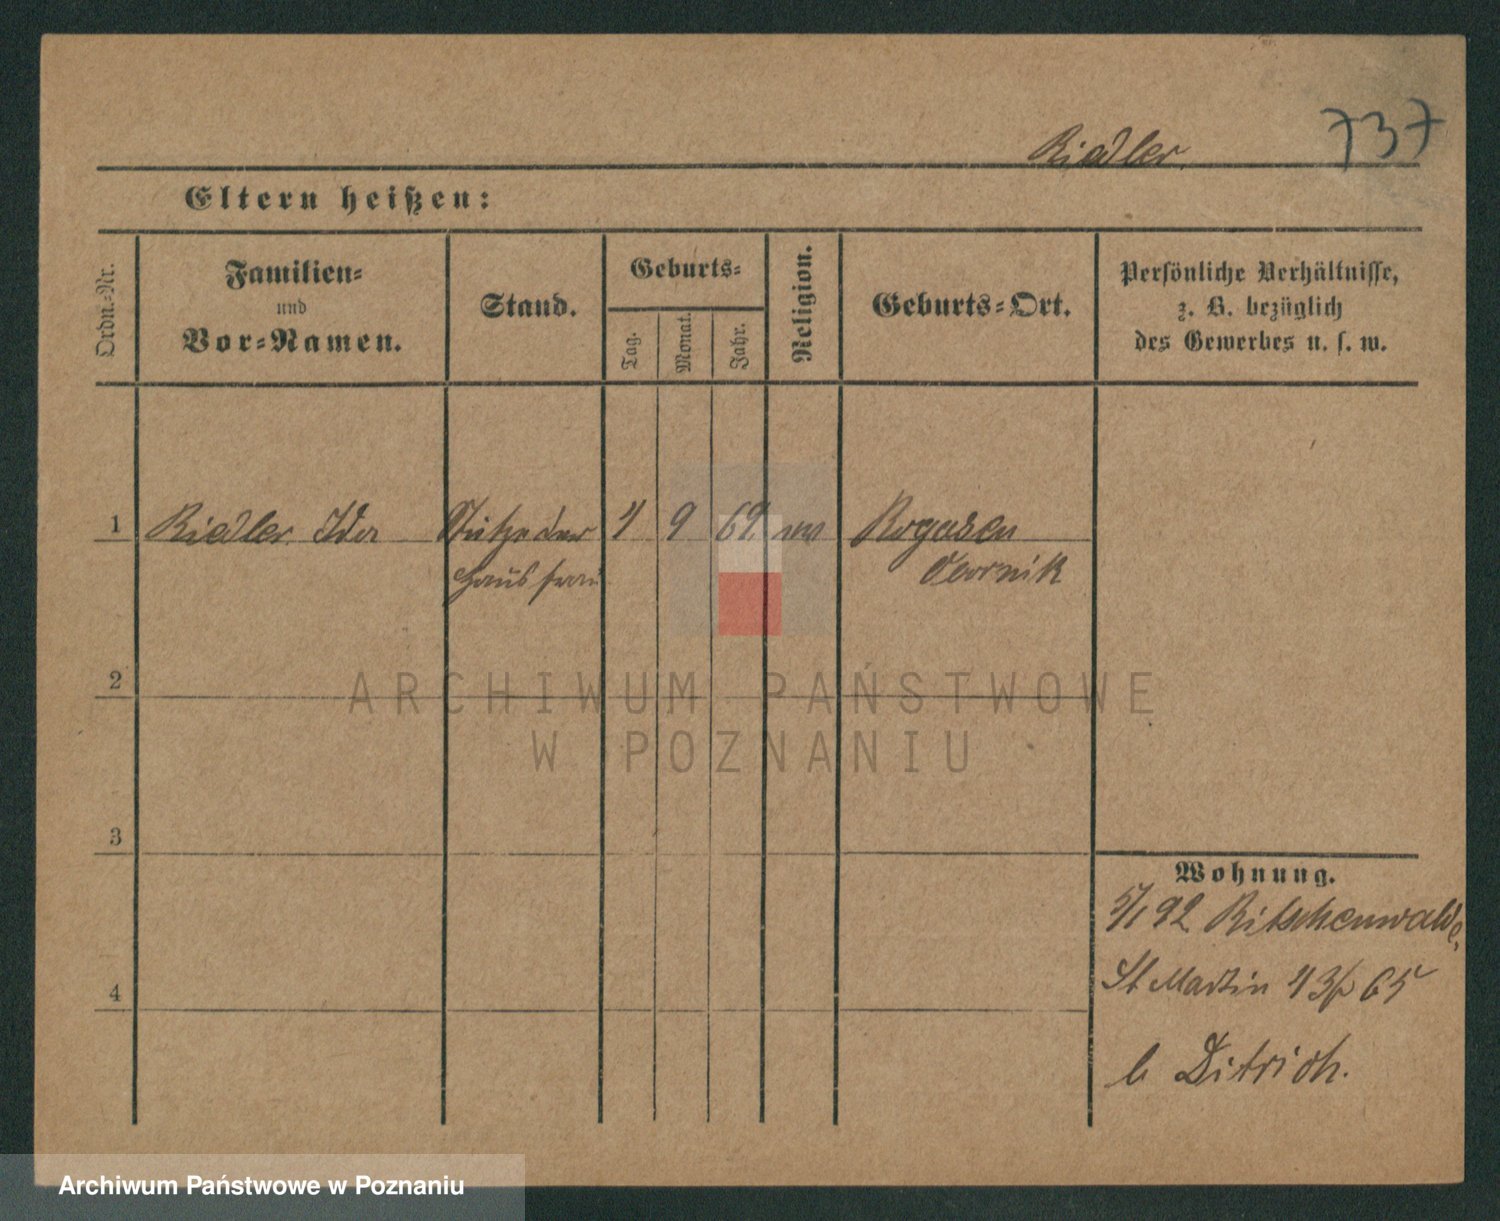 737
Riedler.
Eltern heißen:
Ordn.-Nr.
Familien-
und
Vor-Namen.
Stand.
Geburts-
Tag.
Monat.
Jahr.
Religion.
Geburts-Ort.
Persönliche Verhältnisse,
z. B. bezüglich
des Gewerbes u. s. w.
1 Riedler Ida Stütze der 9 69 Rogasen
Hausfrau Obornik
2
3
4
Wohnung.
92 Ritschenwalde,
St Martin 43 65
b Ditrich.
ARCHIWUM PAŃSTWOWE
W POZNANIU
Archiwum Państwowe w Poznaniu